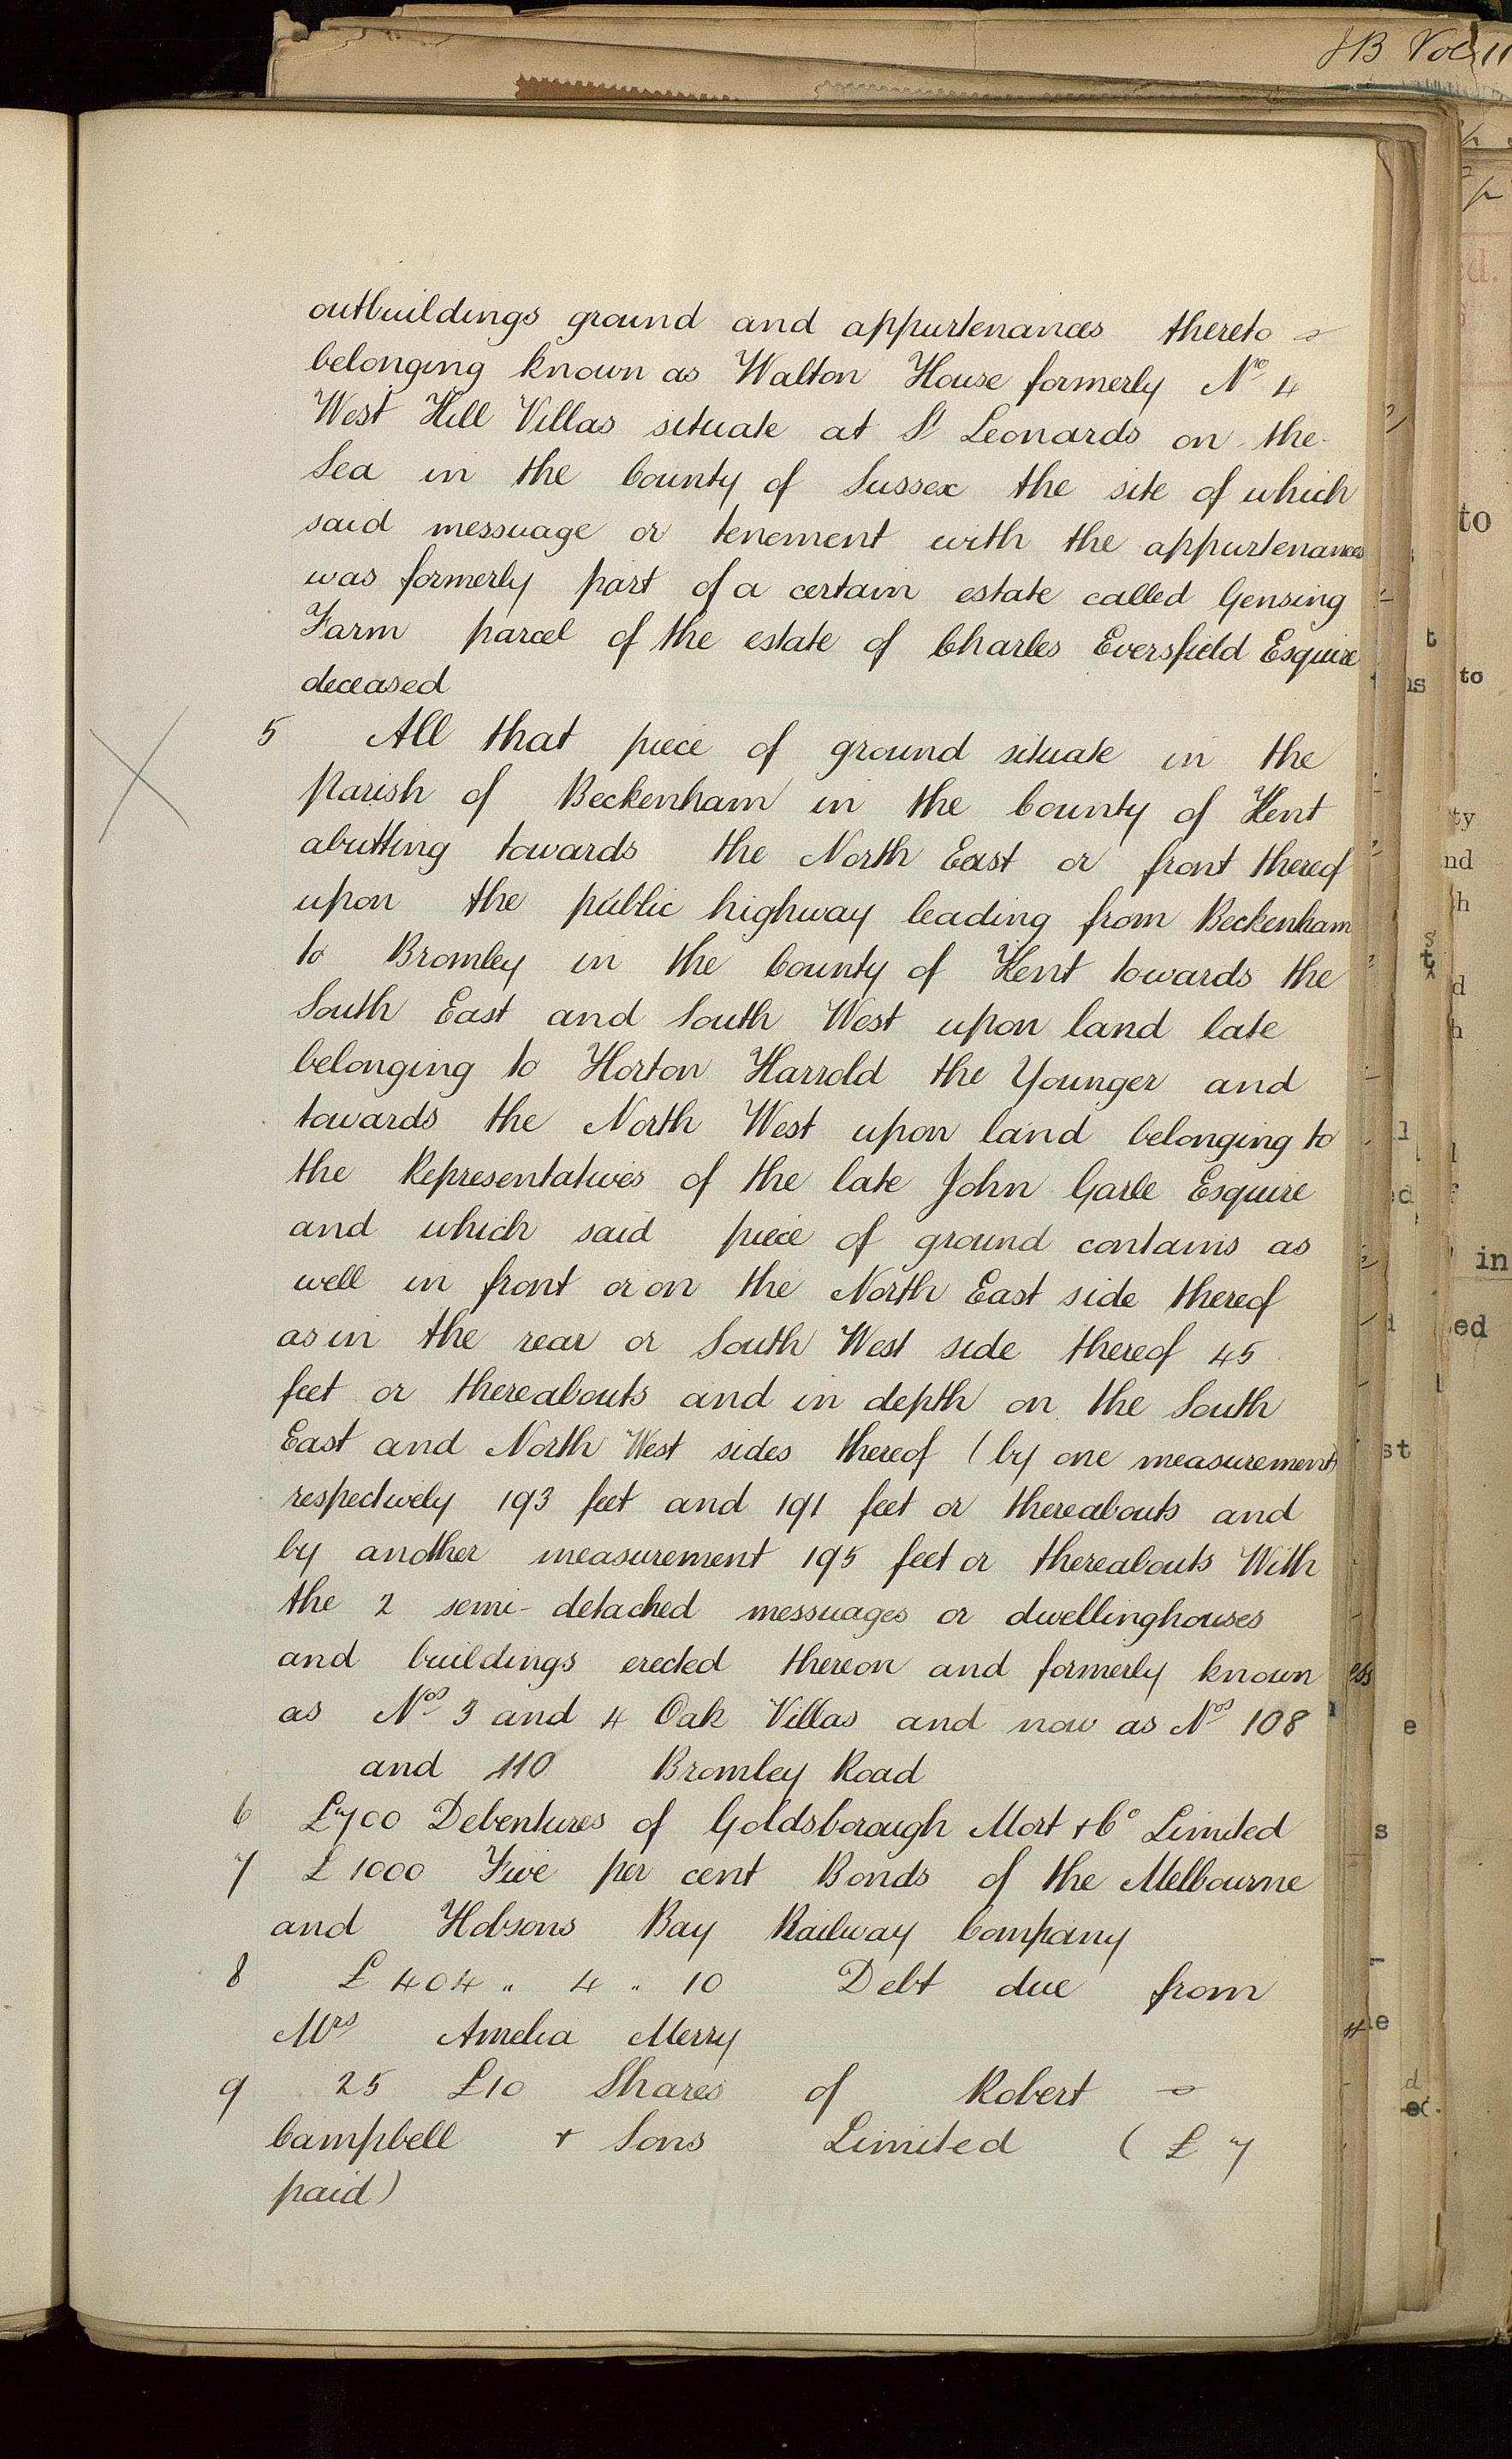 JB Vol 11
outbuildings ground and appurtenances thereto
belonging known as Walton House formerly No 4
West Hill Villas situate at St Leonards on the
Sea in the County of Sussex the site of which
said messuage or tenement with the appurtenances
was formerly part of a certain estate called Gensing
Farm parcel of the estate of Charles Eversfield Esquire
deceased
5 All that piece of ground situate in the
parish of Beckenham in the County of Kent
abutting towards the North East or front thereof
upon the public highway leading from Beckenham
to Bromley in the County of Kent towards the
South East and South West upon land late
belonging to Horton Harrold the Younger and
towards the North West upon land belonging to
the Representatives of the late John Garle Esquire
and which said piece of ground contains as
well in front or on the North East side thereof
as in the rear or South West side thereof 45
feet or thereabouts and in depth on the South
East and North West sides thereof (by one measurement)
respectively 193 feet and 191 feet or thereabouts and
by another measurement 195 feet or thereabouts With
the 2 semi-detached messuages or dwellinghouses
and buildings erected thereon and formerly known
as Nos 3 and 4 Oak Villas and now as Nos 108
and 110 Bromley Road
6 £700 Debentures of Goldsborough Mort & Co Limited
7 £1000 Five per cent Bonds of the Melbourne
and Hobsons Bay Railway Company
8 £404 " 4 " 10 Debt due from
Mrs Amelia Merry
9 25 £10 Shares of Robert
Campbell & Sons Limited (£7
paid)